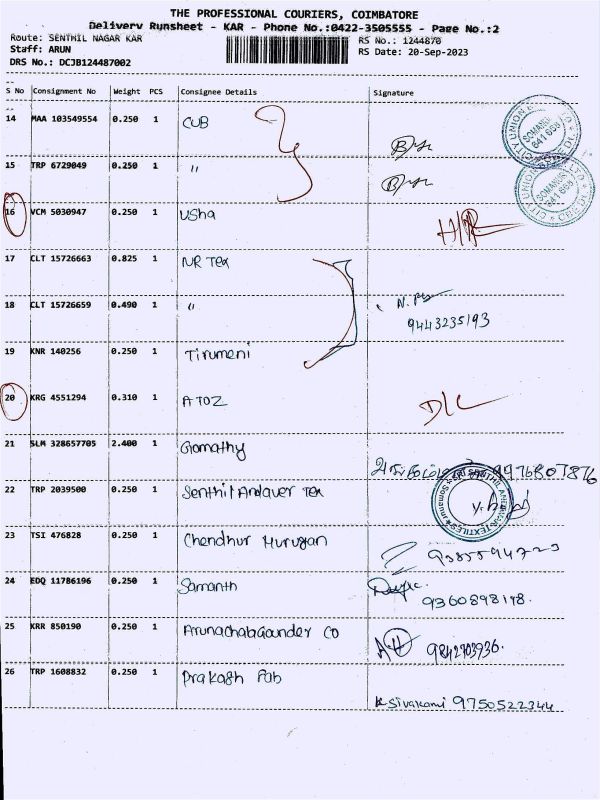 THE PROFESSIONAL COURIERS, COIMBATORE
Delivery Runsheet - KAR - Phone No.:0422-3505555 - Page No.:2
Route: SENTHIL NAGAR KAR
RS No.: 1244870
Staff: ARUN
RS Date: 20-Sep-2023
DRS No.: DCJB124487002
S No Consignment No Weight PCS Consignee Details Signature
14 MAA 103549554 0.250 1 CUB
CITY UNION BANK LTD SOMANUR 641 668 CBE DT
15 TRP 6729049 0.250 1 "
CITY UNION BANK LTD SOMANUR 641 668 CBE DT
16 VCM 5030947 0.250 1 Usha
17 CLT 15726663 0.825 1 NR Tex
18 CLT 15726659 0.490 1 "
9443235193
19 KNR 140256 0.250 1 Tirumeni
20 KRG 4551294 0.310 1 A TO Z D/L
21 SLM 328657705 2.400 1 Gomathy
9976807876
22 TRP 2039500 0.250 1 Senthil Andaver Tex
23 TSI 476828 0.250 1 Chendhur Murugan
24 EDQ 11786196 0.250 1 Samanth
9360898198.
25 KRR 850190 0.250 1 Arunachalagounder CO
9842703936.
26 TRP 1608832 0.250 1 Prakash Fab
K Sivakami 9750522344